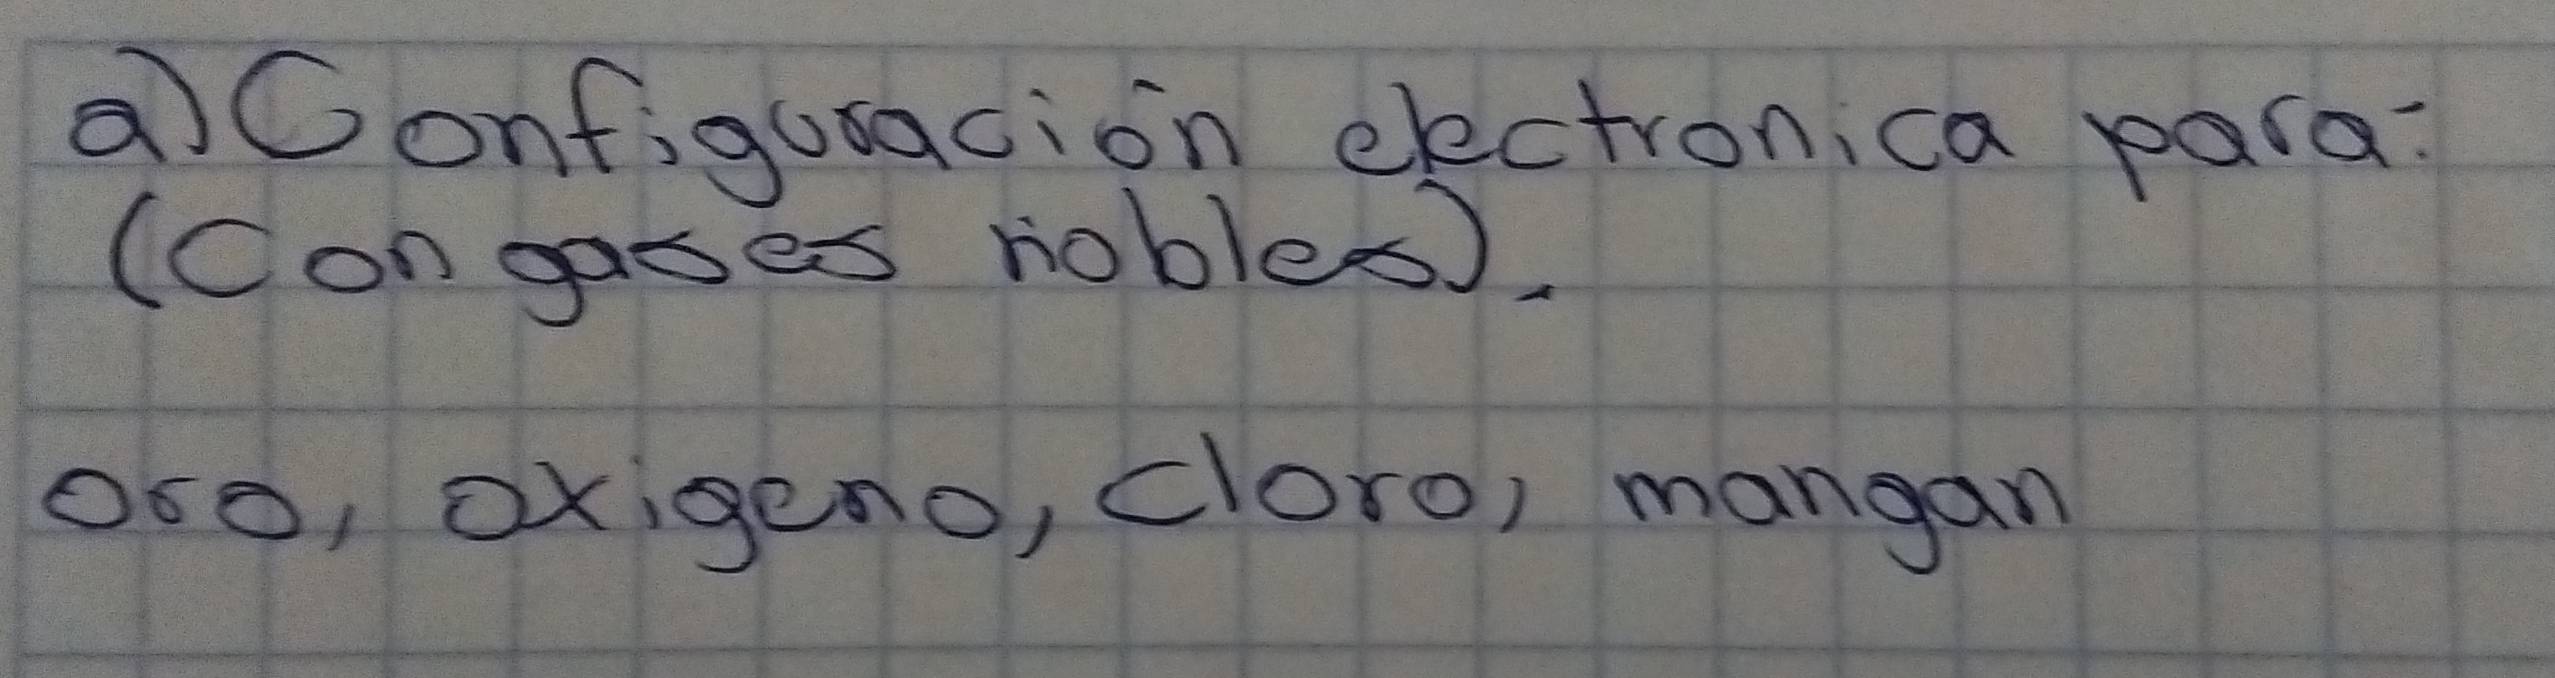 a) Configuración electronica para:
(Con gases nobles).
oro, oxigeno, cloro, mangan